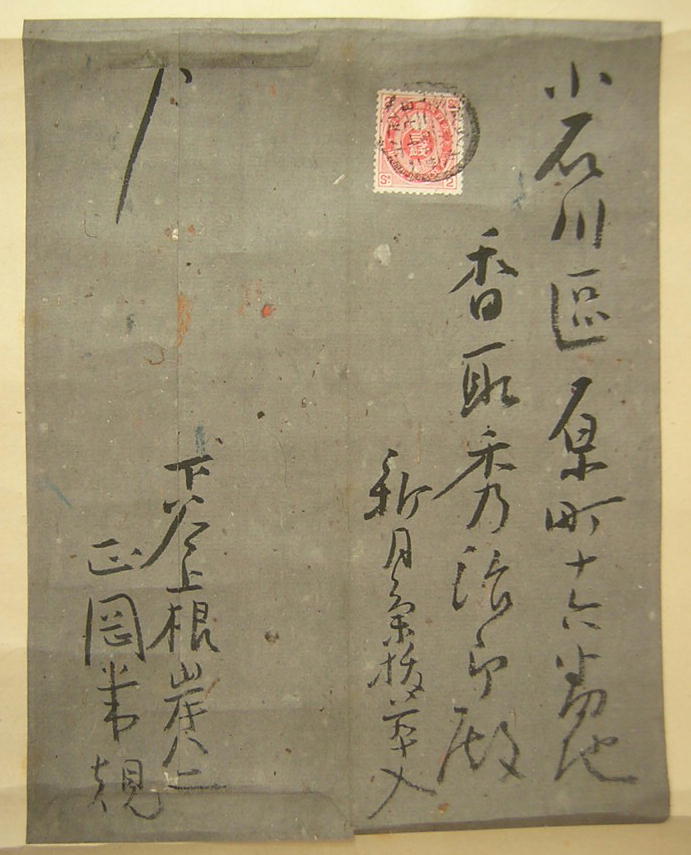 小石川區原町十六番地
香取秀治郎殿
新月集抜萃入
下谷上根岸八二
正岡常規